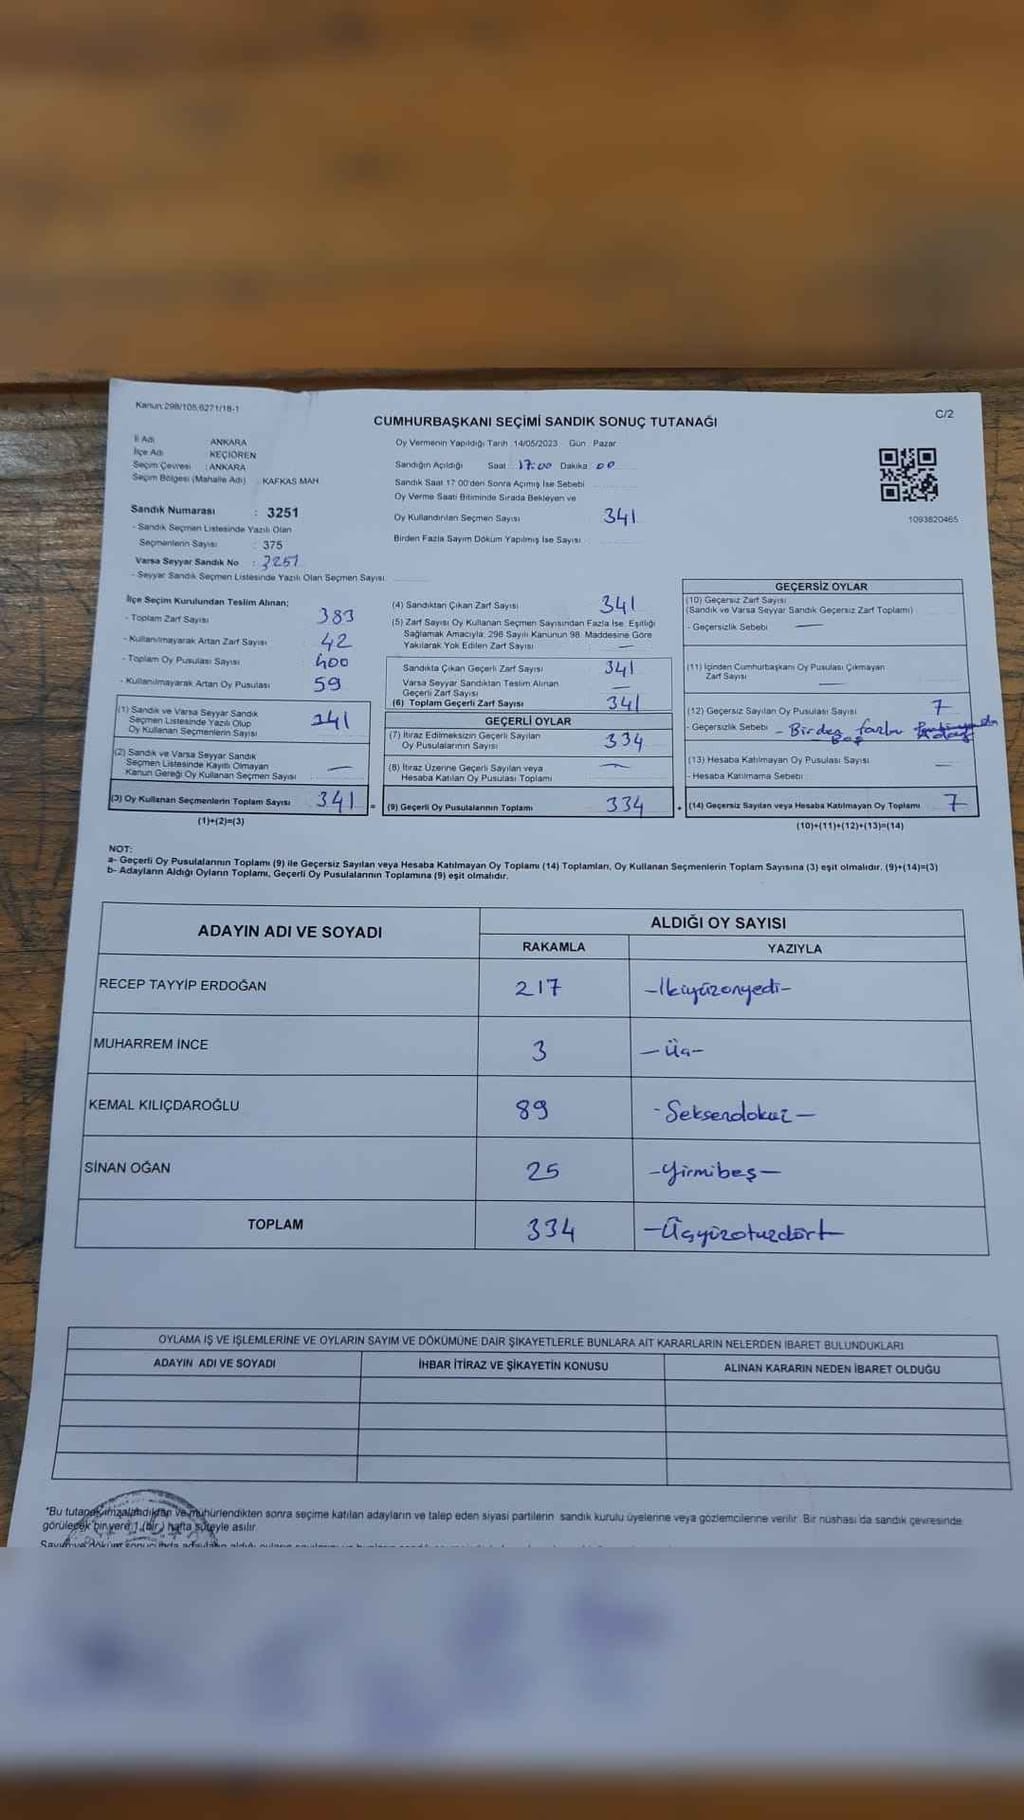 Kanun:298/105,6271/18-1
C/2
CUMHURBAŞKANI SEÇİMİ SANDIK SONUÇ TUTANAĞI
İl Adı ANKARA
İlçe Adı KEÇİÖREN
Seçim Çevresi : ANKARA
Seçim Bölgesi (Mahalle Adı) KAFKAS MAH
Sandık Numarası : 3251
- Sandık Seçmen Listesinde Yazılı Olan
Seçmenlerin Sayısı : 375
Varsa Seyyar Sandık No : 3251
- Seyyar Sandık Seçmen Listesinde Yazılı Olan Seçmen Sayısı
Oy Vermenin Yapıldığı Tarih 14/05/2023 Gün Pazar
Sandığın Açıldığı Saat 17:00 Dakika 00
Sandık Saat 17:00'den Sonra Açımış İse Sebebi
Oy Verme Saati Bitiminde Sırada Bekleyen ve
Oy Kullandırılan Seçmen Sayısı 341
Birden Fazla Sayım Döküm Yapılmış İse Sayısı
1093820465
İlçe Seçim Kurulundan Teslim Alınan;
- Toplam Zarf Sayısı 383
- Kullanılmayarak Artan Zarf Sayısı 42
- Toplam Oy Pusulası Sayısı 400
- Kullanılmayarak Artan Oy Pusulası 59
(1) Sandık ve Varsa Seyyar Sandık
Seçmen Listesinde Yazılı Olup
Oy Kullanan Seçmenlerin Sayısı 341
(2) Sandık ve Varsa Seyyar Sandık
Seçmen Listesinde Kayıtlı Olmayan
Kanun Gereği Oy Kullanan Seçmen Sayısı —
(3) Oy Kullanan Seçmenlerin Toplam Sayısı 341
(1)+(2)=(3)
=
(4) Sandıktan Çıkan Zarf Sayısı 341
(5) Zarf Sayısı Oy Kullanan Seçmen Sayısından Fazla İse, Eşitliği
Sağlamak Amacıyla; 298 Sayılı Kanunun 98. Maddesine Göre
Yakılarak Yok Edilen Zarf Sayısı —
Sandıkta Çıkan Geçerli Zarf Sayısı 341
Varsa Seyyar Sandıktan Teslim Alınan
Geçerli Zarf Sayısı —
(6) Toplam Geçerli Zarf Sayısı 341
GEÇERLİ OYLAR
(7) İtiraz Edilmeksizin Geçerli Sayılan
Oy Pusulalarının Sayısı 334
(8) İtiraz Üzerine Geçerli Sayılan veya
Hesaba Katılan Oy Pusulası Toplamı —
(9) Geçerli Oy Pusulalarının Toplamı 334
+
GEÇERSİZ OYLAR
(10) Geçersiz Zarf Sayısı
(Sandık ve Varsa Seyyar Sandık Geçersiz Zarf Toplamı)
- Geçersizlik Sebebi —
(11) İçinden Cumhurbaşkanı Oy Pusulası Çıkmayan
Zarf Sayısı —
(12) Geçersiz Sayılan Oy Pusulası Sayısı 7
- Geçersizlik Sebebi - Birden fazla
Boş
(13) Hesaba Katılmayan Oy Pusulası Sayısı —
- Hesaba Katılmama Sebebi
(14) Geçersiz Sayılan veya Hesaba Katılmayan Oy Toplamı 7
(10)+(11)+(12)+(13)=(14)
NOT:
a- Geçerli Oy Pusulalarının Toplamı (9) ile Geçersiz Sayılan veya Hesaba Katılmayan Oy Toplamı (14) Toplamları, Oy Kullanan Seçmenlerin Toplam Sayısına (3) eşit olmalıdır. (9)+(14)=(3)
b- Adayların Aldığı Oyların Toplamı, Geçerli Oy Pusulalarının Toplamına (9) eşit olmalıdır.
ADAYIN ADI VE SOYADI
ALDIĞI OY SAYISI
RAKAMLA YAZIYLA
RECEP TAYYİP ERDOĞAN 217 -İkiyüzonyedi-
MUHARREM İNCE 3 -Üç-
KEMAL KILIÇDAROĞLU 89 -Seksendokuz-
SİNAN OĞAN 25 -Yirmibeş-
TOPLAM 334 -Üçyüzotuzdört-
OYLAMA İŞ VE İŞLEMLERİNE VE OYLARIN SAYIM VE DÖKÜMÜNE DAİR ŞİKAYETLERLE BUNLARA AİT KARARLARIN NELERDEN İBARET BULUNDUKLARI
ADAYIN ADI VE SOYADI İHBAR İTİRAZ VE ŞİKAYETİN KONUSU ALINAN KARARIN NEDEN İBARET OLDUĞU
*Bu tutanak imzalandıktan ve mühürlendikten sonra seçime katılan adayların ve talep eden siyasi partilerin sandık kurulu üyelerine veya gözlemcilerine verilir. Bir nüshası da sandık çevresinde
görülecek bir yere 1 (bir) hafta süreyle asılır.